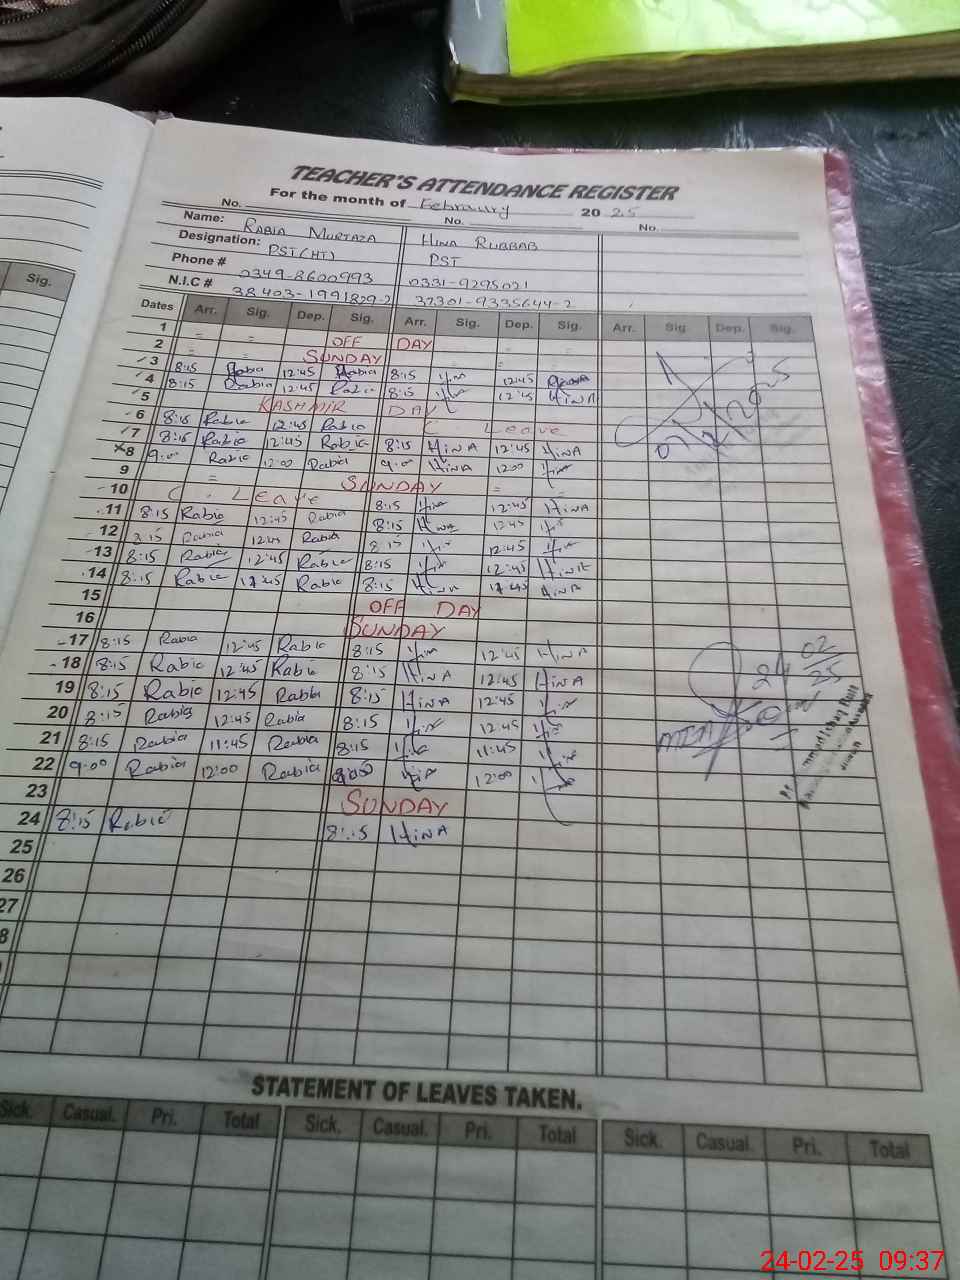 Sig.
TEACHER'S ATTENDANCE REGISTER
For the month of Febraury 2025
No. No. No.
Name: RABIA MURTAZA HINA RUBBAB
Designation: PST(HT) PST
Phone # 0349-8600993 0331-9295021
N.I.C # 38403-1991829-2 37301-9335644-2
Dates Arr. Sig. Dep. Sig. Arr. Sig. Dep. Sig. Arr. Sig. Dep. Sig.
1 OFF DAY
2 SUNDAY
3 8:15 Rabia 12:45 Rabia 8:15 12:45
4 8:15 Rabia 12:45 Rabia 8:15 12:45 HINA
5 KASHMIR DAY
6 8:15 Rabia 12:45 Rabia C Leave
7 8:15 Rabia 12:45 Rabia 8:15 HINA 12:45 HINA
8 9:00 Rabia 12:00 Rabia 9:00 HINA 12:00
9 SUNDAY
10 C. Leave 8:15 Hina 12:45 HINA
11 8:15 Rabia 12:45 Rabia 8:15 HINA 12:45
12 8:15 Rabia 12:45 Rabia 8:15 12:45
13 8:15 Rabia 12:45 Rabia 8:15 12:45 HINA
14 8:15 Rabia 12:45 Rabia 8:15 HINA 12:45 HINA
15 OFF DAY
16 SUNDAY
17 8:15 Rabia 12:45 Rabia 8:15 12:45 HINA
18 8:15 Rabia 12:45 Rabia 8:15 HINA 12:45 HINA
19 8:15 Rabia 12:45 Rabia 8:15 HINA 12:45
20 8:15 Rabia 12:45 Rabia 8:15 12:45
21 8:15 Rabia 11:45 Rabia 8:15 11:45
22 9:00 Rabia 12:00 Rabia 9:00 12:00
23 SUNDAY
24 8:15 Rabia 8:15 HINA
25
26
27
8
24 02
25
STATEMENT OF LEAVES TAKEN.
Sick. Casual. Pri. Total Sick. Casual. Pri. Total Sick. Casual. Pri. Total
24-02-25 09:37